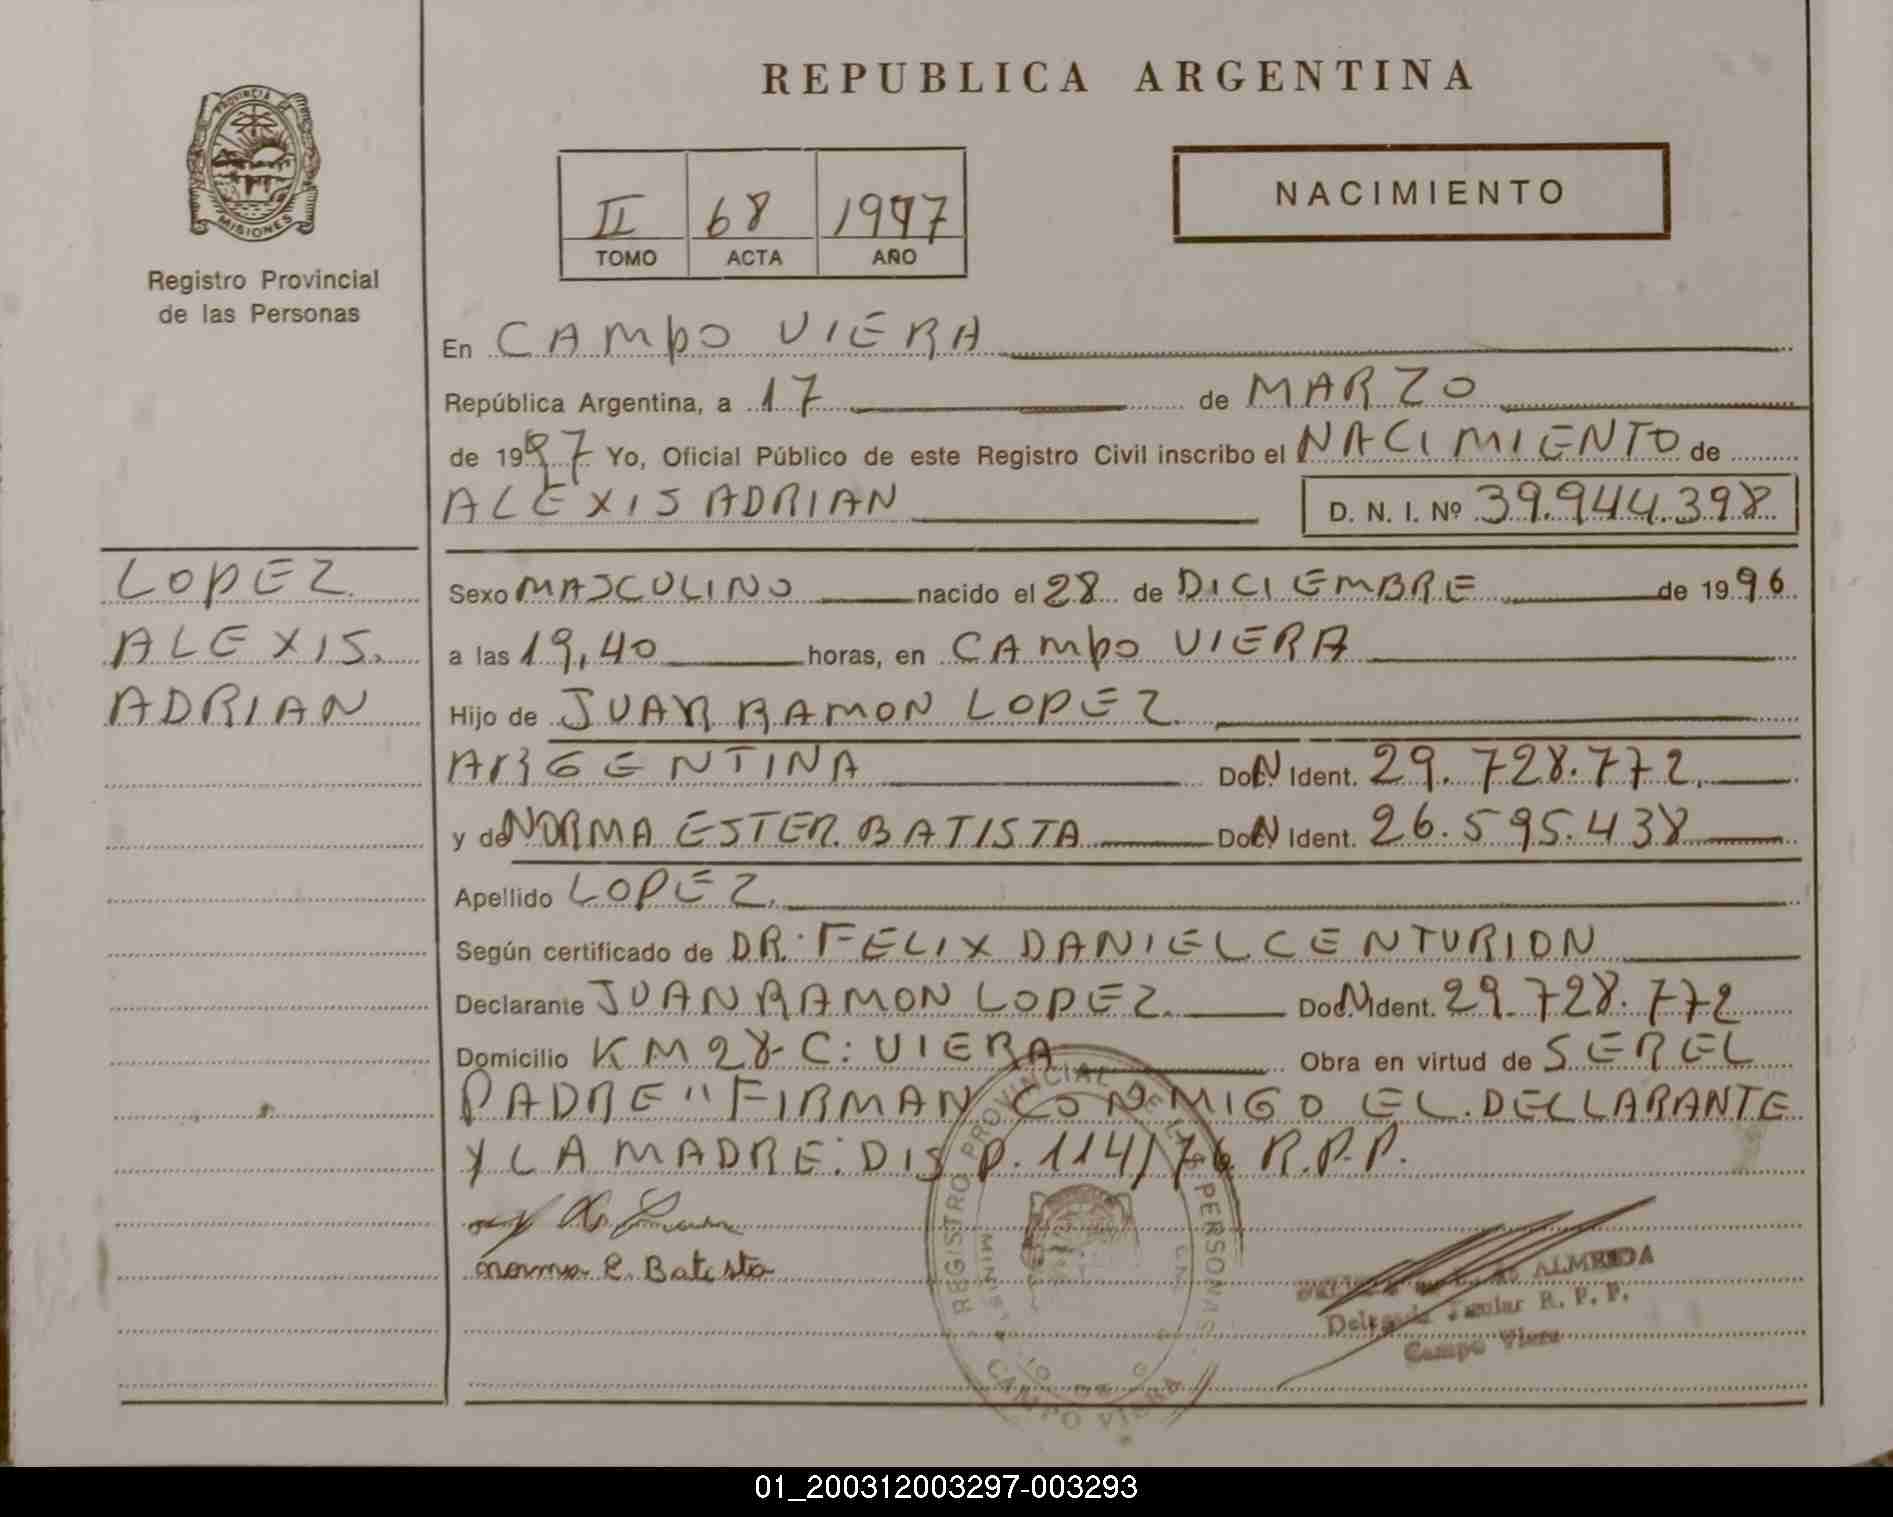 REPUBLICA ARGENTINA
PROVINCIA DE
MISIONES
Registro Provincial
de las Personas
II 68 1997
TOMO ACTA AÑO
NACIMIENTO
En CAMPO VIERA
República Argentina, a 17 de MARZO
de 1997 Yo, Oficial Público de este Registro Civil inscribo el NACIMIENTO de
ALEXIS ADRIAN D. N. I. Nº 39.944.398
LOPEZ
ALEXIS.
ADRIAN
Sexo MASCULINO nacido el 28 de DICIEMBRE de 1996
a las 19,40 horas, en CAMPO VIERA
Hijo de JUAN RAMON LOPEZ
ARGENTINA Doc. N Ident. 29.728.772.
y de NORMA ESTER BATISTA Doc. N Ident. 26.595.438
Apellido LOPEZ.
Según certificado de DR. FELIX DANIEL CENTURION
Declarante JUAN RAMON LOPEZ. Doc. N Ident. 29.728.772
Domicilio KM 28- C: VIERA Obra en virtud de SER EL
PADRE" FIRMAN CONMIGO EL DECLARANTE
Y LA MADRE: DISP. 114/76 R.P.P.
norma E. Batista
REGISTRO PROVINCIAL DE LAS PERSONAS
CAMPO VIERA
ALMEIDA
Delegada Titular R. P. P.
Campo Viera
01_200312003297-003293